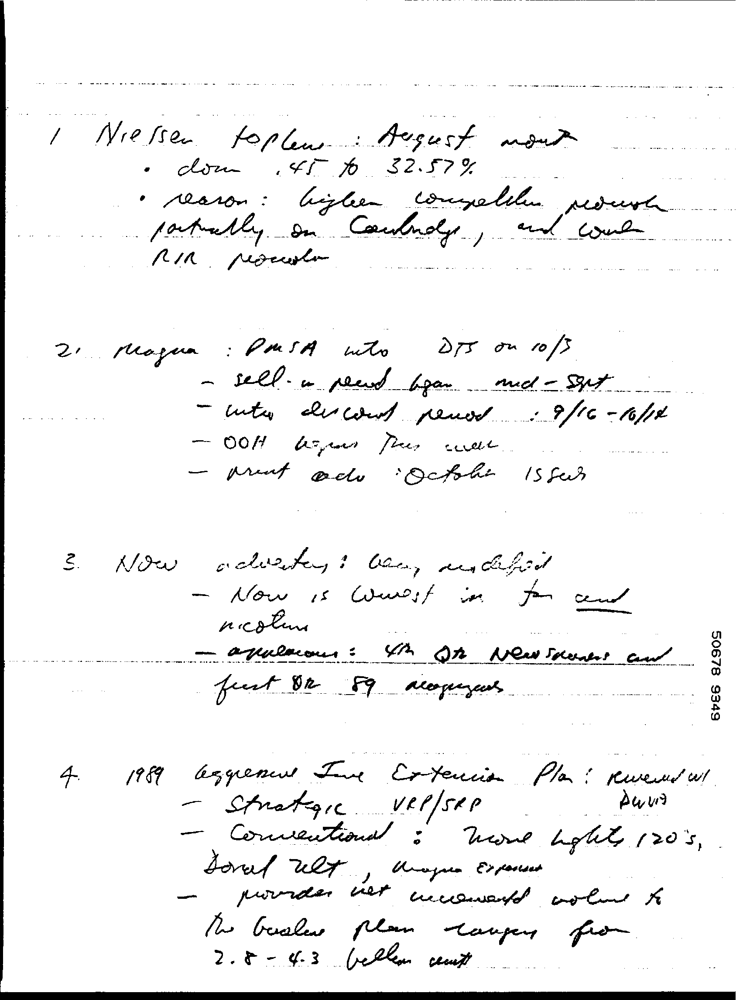 1 Nielsen topline : August mont
• down .45 to 32.57%
• reason : higher competitive
partually on Cambridge, and
RIR
2. Magna : PMSA into DTS on 10/3
- sell-in period began mid-Sept
- intro discount period : 9/16-10/14
- OOH begins this week
- print ads : October issues
3. Now advertsg : being modified
- Now is lowest in tar and
nicotine
- appearances : 4th Qtr Newspapers and
first Qtr 89 magazines
4. 1989 aggressive Line Extension Plan : reviewed w/
- Strategic VRP/SRP
- Conventional : more lights 120's,
Doral Ult, Magna Expansion
- provides net incremental volume to
the baseline plan ranging from
2.8 - 4.3 billion units
50678 9349